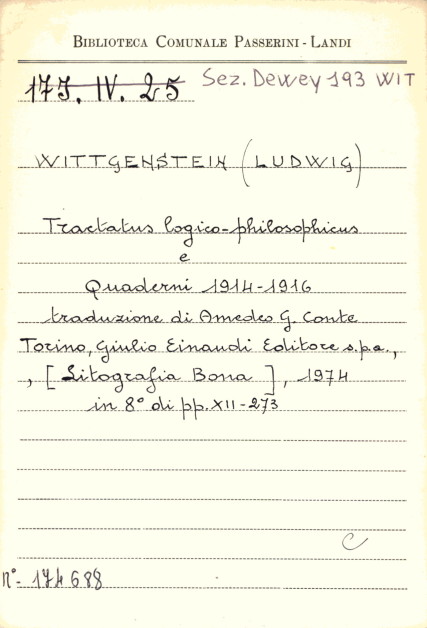 BIBLIOTECA COMUNALE PASSERINI-LANDI
17J. IV. 25 Sez. Dewey 193 WIT
WITTGENSTEIN (LUDWIG)
Tractatus logico-philosophicus
e
Quaderni 1914-1916
traduzione di Amedeo G. Conte
Torino, Giulio Einaudi Editore s.p.a.,
, [Litografia Bona], 1974
in 8° di pp. XII-273
C
n°- 174688